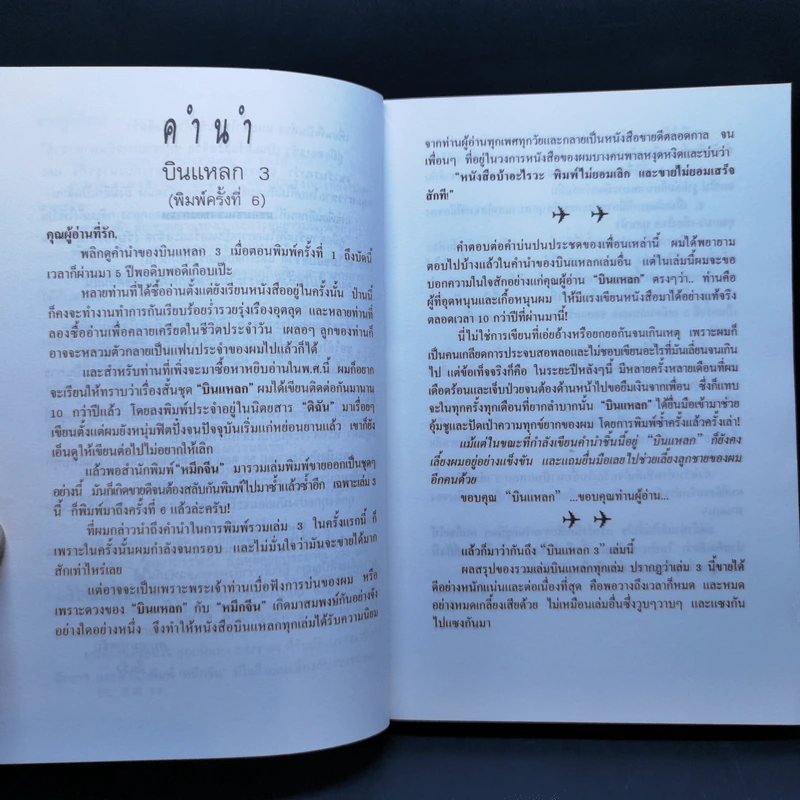 คำนำ
บินแหลก 3
(พิมพ์ครั้งที่ 6)
คุณผู้อ่านที่รัก,
พลิกดูคำนำของบินแหลก 3 เมื่อตอนพิมพ์ครั้งที่ 1 ถึงบัดนี้
เวลาก็ผ่านมา 5 ปีพอดิบพอดีเกือบเป๊ะ
หลายท่านที่ได้ซื้ออ่านตั้งแต่ยังเรียนหนังสืออยู่ในครั้งนั้น ป่านนี้
ก็คงจะทำงานทำการกันเรียบร้อยร่ำรวยรุ่งเรืองอุตลุด และหลายท่านที่
ลองซื้ออ่านเพื่อคลายเครียดในชีวิตประจำวัน เผลอๆ ลูกของท่านก็
อาจจะหลวมตัวกลายเป็นแฟนประจำของผมไปแล้วก็ได้
และสำหรับท่านที่เพิ่งจะมาซื้อหาหยิบอ่านในพ.ศ.นี้ ผมก็อยาก
จะเรียนให้ทราบว่าเรื่องสั้นชุด "บินแหลก" ผมได้เขียนติดต่อกันมานาน
10 กว่าปีแล้ว โดยลงพิมพ์ประจำอยู่ในนิตยสาร "ดิฉัน" มาเรื่อยๆ
เขียนตั้งแต่ผมยังหนุ่มฟิตปั๋งจนปัจจุบันเริ่มแก่หย่อนยานแล้ว เขาก็ยัง
เอ็นดูให้เขียนต่อไปไม่อยากให้เลิก
แล้วพอสำนักพิมพ์ "หมึกจีน" มารวมเล่มพิมพ์ขายออกเป็นชุดๆ
อย่างนี้ มันก็เกิดขายดีจนต้องสลับกันพิมพ์ไปมาซ้ำแล้วซ้ำอีก เฉพาะเล่ม
3 นี้ ก็พิมพ์มาถึงครั้งที่ 6 แล้วล่ะครับ!
ที่ผมกล่าวนำถึงคำนำในการพิมพ์รวมเล่ม 3 ในครั้งแรกนี้ ก็
เพราะในครั้งนั้นผมกำลังจนกรอบ และไม่มั่นใจว่ามันจะขายได้มาก
สักเท่าไหร่เลย
แต่อาจจะเป็นเพราะพระเจ้าท่านเบื่อฟังการบ่นของผม หรือ
เพราะดวงของ "บินแหลก" กับ "หมึกจีน" เกิดมาสมพงษ์กันอย่างจัง
อย่างใดอย่างหนึ่ง จึงทำให้หนังสือบินแหลกทุกเล่มได้รับความนิยม
จากท่านผู้อ่านทุกเพศทุกวัยและกลายเป็นหนังสือขายดีตลอดกาล จน
เพื่อนๆ ที่อยู่ในวงการหนังสือของผมบางคนพาลหงุดหงิดและบ่นว่า
"หนังสือบ้าอะไรวะ พิมพ์ไม่ยอมเลิก และขายไม่ยอมเสร็จ
สักที!"
คำตอบต่อคำบ่นปนประชดของเพื่อนเหล่านี้ ผมได้พยายาม
ตอบไปบ้างแล้วในคำนำของบินแหลกเล่มอื่น แต่ในเล่มนี้ผมจะขอ
บอกความในใจสักอย่างแก่คุณผู้อ่าน "บินแหลก" ตรงๆว่า.. ท่านคือ
ผู้ที่อุดหนุนและเกื้อหนุนผม ให้มีแรงเขียนหนังสือมาได้อย่างแท้จริง
ตลอดเวลา 10 กว่าปีที่ผ่านมานี้!
นี่ไม่ใช่การเขียนที่เอ่ยอ้างหรือยกยอกันจนเกินเหตุ เพราะผมก็
เป็นคนเกลียดการประจบสอพลอและไม่ชอบเขียนอะไรที่มันเลี่ยนจนเกิน
ไป แต่ข้อเท็จจริงก็คือ ในระยะปีหลังๆนี้ มีหลายครั้งหลายเดือนที่ผม
เดือดร้อนและเจ็บป่วยจนต้องด้านหน้าไปขอยืมเงินจากเพื่อน ซึ่งก็แทบ
จะในทุกครั้งทุกเดือนที่ยากลำบากนั้น "บินแหลก" ได้ยื่นมือเข้ามาช่วย
อุ้มชูและปัดเป่าความทุกข์ยากของผม โดยการพิมพ์ซ้ำครั้งแล้วครั้งเล่า!
แม้แต่ในขณะที่กำลังเขียนคำนำชิ้นนี้อยู่ "บินแหลก" ก็ยังคง
เลี้ยงผมอยู่อย่างแข็งขัน และแถมยื่นมือเลยไปช่วยเลี้ยงลูกชายของผม
อีกคนด้วย
ขอบคุณ "บินแหลก" ...ขอบคุณท่านผู้อ่าน...
แล้วก็มาว่ากันถึง "บินแหลก 3" เล่มนี้
ผลสรุปของรวมเล่มบินแหลกทุกเล่ม ปรากฏว่าเล่ม 3 นี้ขายได้
ดีอย่างหนักแน่นและต่อเนื่องที่สุด คือพอวางถึงเวลาก็หมด และหมด
อย่างหมดเกลี้ยงเสียด้วย ไม่เหมือนเล่มอื่นซึ่งวูบๆวาบๆ และแซงกัน
ไปแซงกันมา